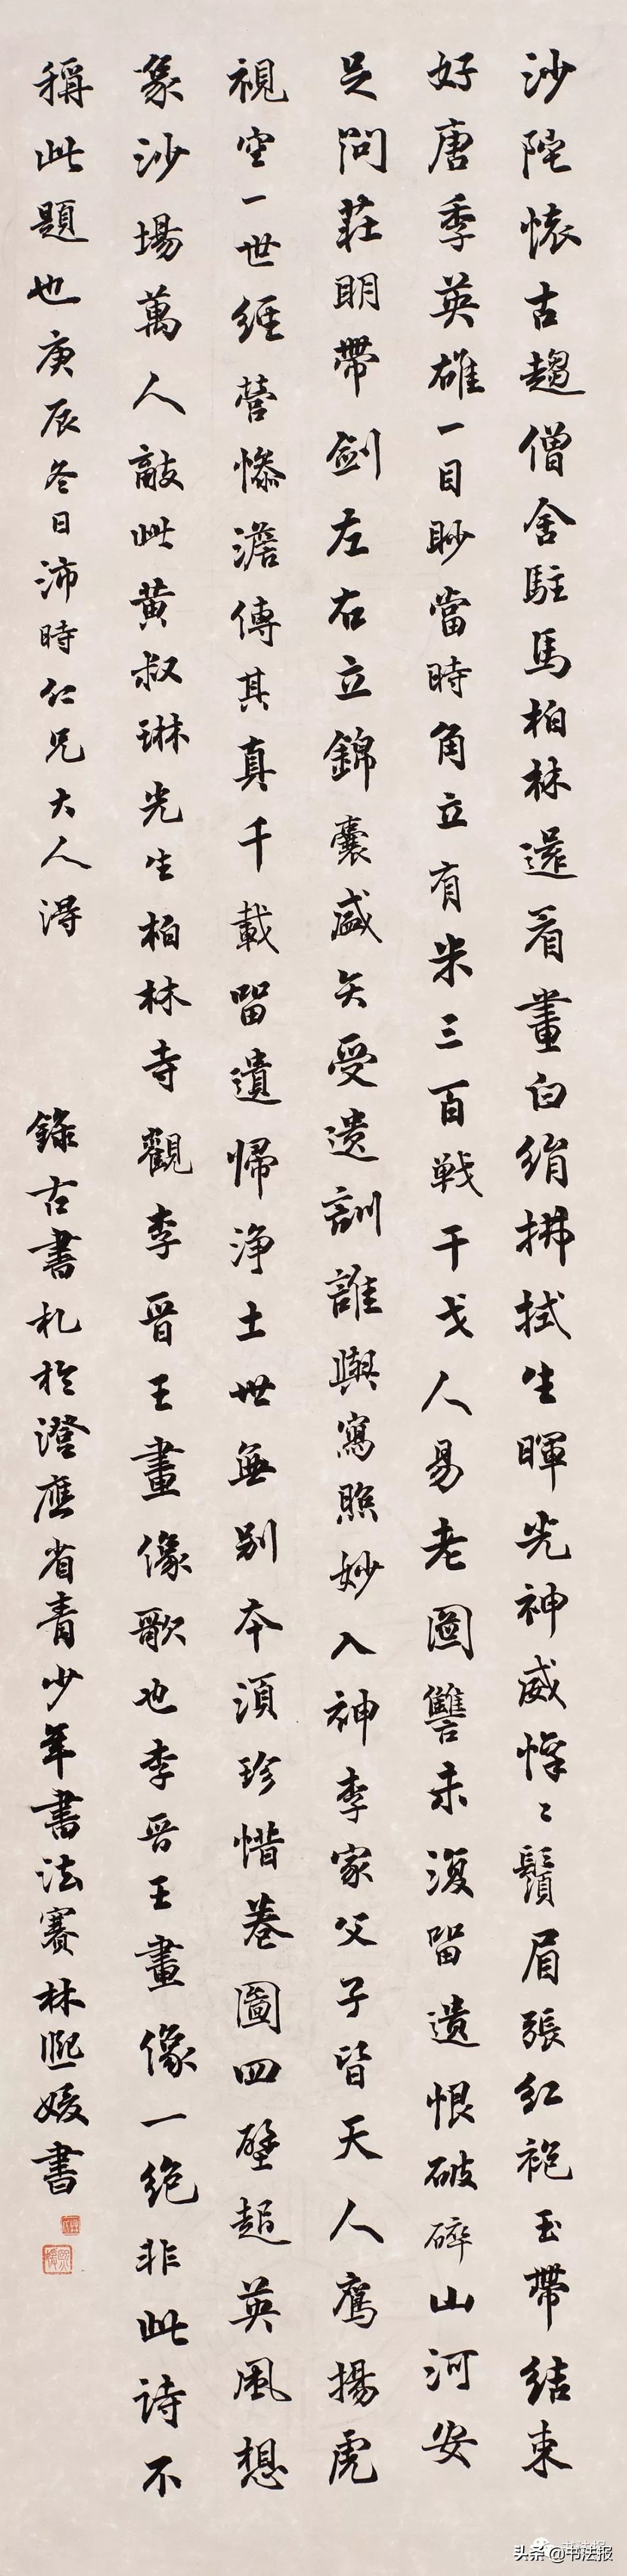 沙陀懷古趨僧舍駐馬柏林還看畫白絹拂拭生暉光神威悻〻鬚眉張紅袍玉帶結束
好唐季英雄一目眇當時角立有朱三百戰干戈人易老圖讐未復留遺恨破碎山河安
足問莊明帶劍左右立錦囊盛矢受遺訓誰與寫照妙入神李家父子皆天人鷹揚虎
視空一世經營慘澹傳其真千載留遺歸淨土世無別本須珍惜卷圖四壁起英風想
象沙場萬人敵此黃叔琳先生柏林寺觀李晉王畫像歌也李晉王畫像一絕非此詩不
稱此題也庚辰冬日沛時仁兄大人得
錄古書札於澄應省青少年書法賽林熙媛書
头条 @书法报